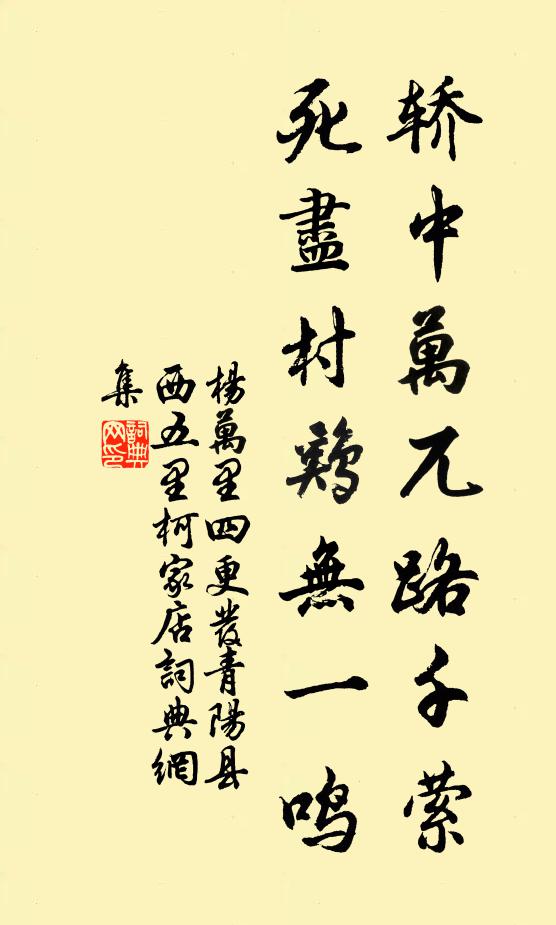 轿中萬兀路千萦
死盡村鷄無一鸣
楊萬里四更發青陽县
西五里柯家店詞典網
集
詞典网印